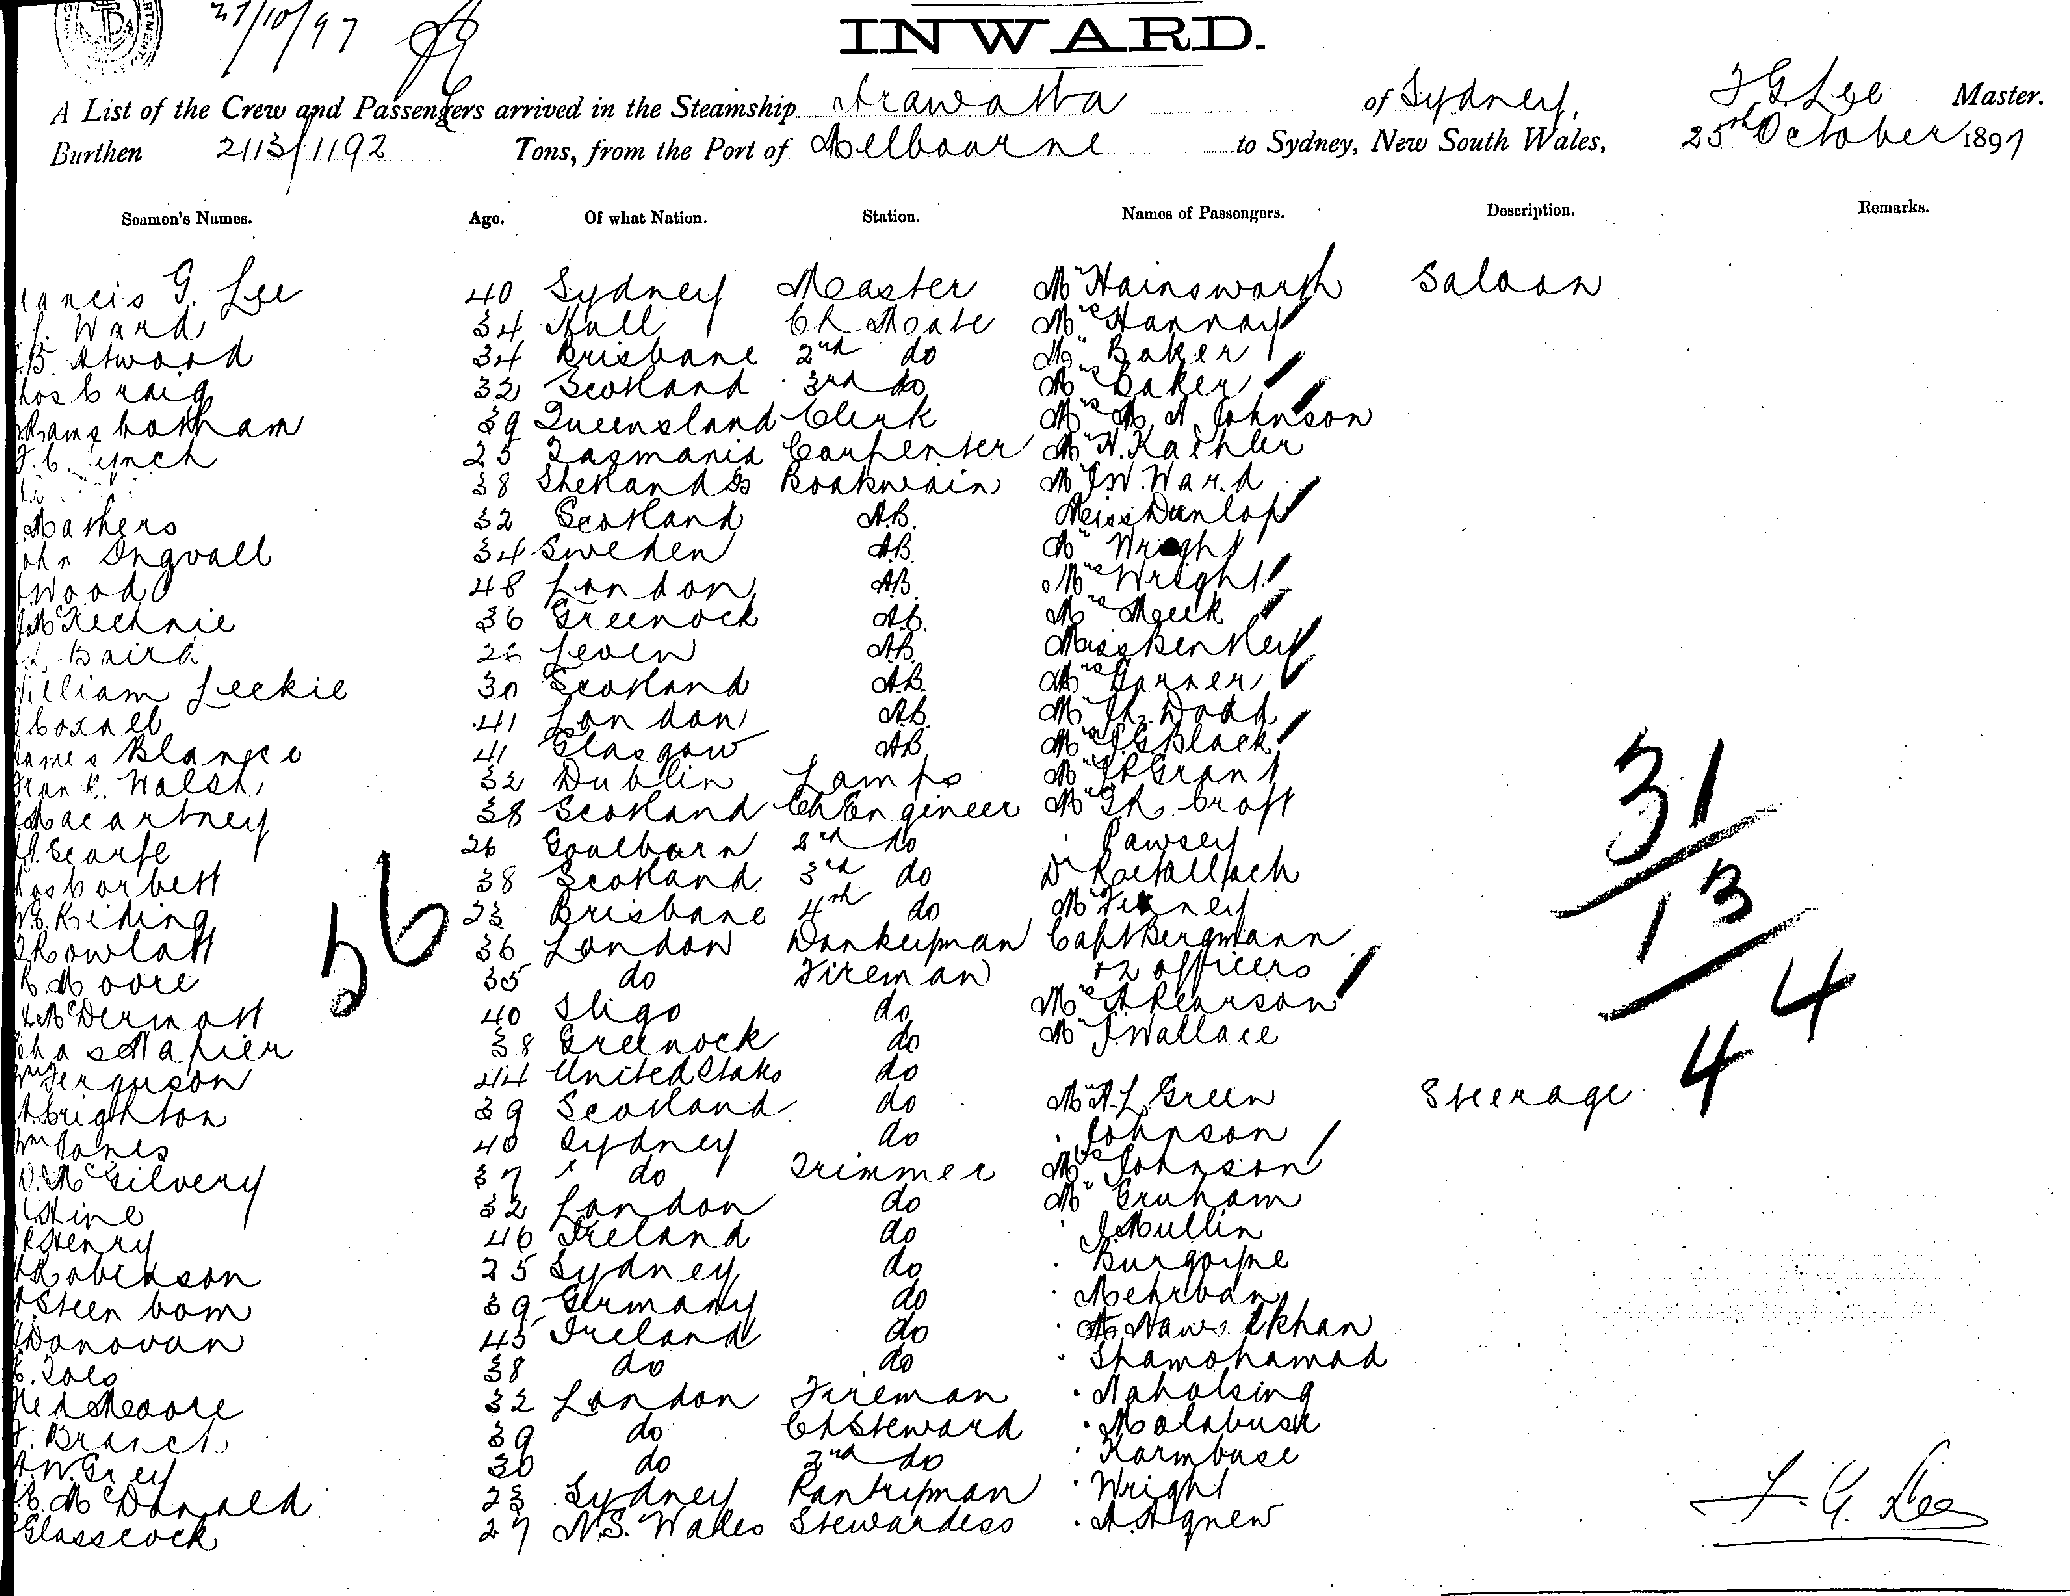 27/10/97
INWARD.
A List of the Crew and Passengers arrived in the Steamship Arawatta of Sydney, F G Lee Master.
Burthen 2113/1192 Tons, from the Port of Melbourne to Sydney, New South Wales, 25th October 1897
Seamen's Names. Age. Of what Nation. Station. Names of Passengers. Description. Remarks.
ancis G. Lee 40 Sydney Master Mr Hainsworth Saloon
Ward 34 Hull Ch Mate Mrs Hannay
B. Atwood 34 Brisbane 2nd do Mr Baker
hos Craig 32 Scotland 3rd do Mrs Baker
Ramsbotham 39 Queensland Clerk Mrs M. A. Johnson
F. C. Lynch 25 Tasmania Carpenter Mr H. Kaehler
38 Shetland Is Boatswain Mr J W. Ward
Mathers 32 Scotland AB. Miss Dunlop
ohn Ingvall 34 Sweden AB. Mr Wright
Wood 48 London AB. Mrs Wright
McKechnie 36 Greenock AB. Mrs Meek
Baird 26 Leven AB. Miss Bentley
William Leckie 30 Scotland AB. Mrs Garner
Coxall 41 London AB. Mr Dodd
James Blance 41 Glasgow AB. Mrs J. G Black
Frank Walsh 32 Dublin Lamps Mr Grant
Macartney 38 Scotland Ch Engineer Mr G R Croft
Scarfe 26 Goulburn 2nd do Pawsey
hos Corbett 38 Scotland 3rd do Dr Retallack
Riding 23 Brisbane 4th do Mr Tierney
Rowlatt 36 London Donkeyman Capt Bergmann
Moore 35 do Fireman + 2 officers
McDermott 40 Sligo do Mrs A Pearson
Chas Napier 38 Greenock do Mr J Wallace
Wm Ferguson 44 United States do
Brighton 39 Scotland do Mr A. L. Green Steerage
Wm Jones 40 Sydney do Johnson
McGilvery 37 do Trimmer Mrs Johnson
Hine 32 London do Mr Graham
Henry 46 Ireland do J Mullin
Robinson 25 Sydney do Burgoyne
Steenbom 39 Germany do Mehrban
Donovan 45 Ireland do Khan
38 do do Shamohamad
Moore 32 London Fireman Naholsing
Branch 39 do Ch Steward Molabush
W. Grey 30 do 2nd do Karmbuse
McDonald 23 Sydney Pantryman Wright
Glasscock 27 N.S. Wales Stewardess A. Agnew
56
31
13
44
4
F. G. Lee